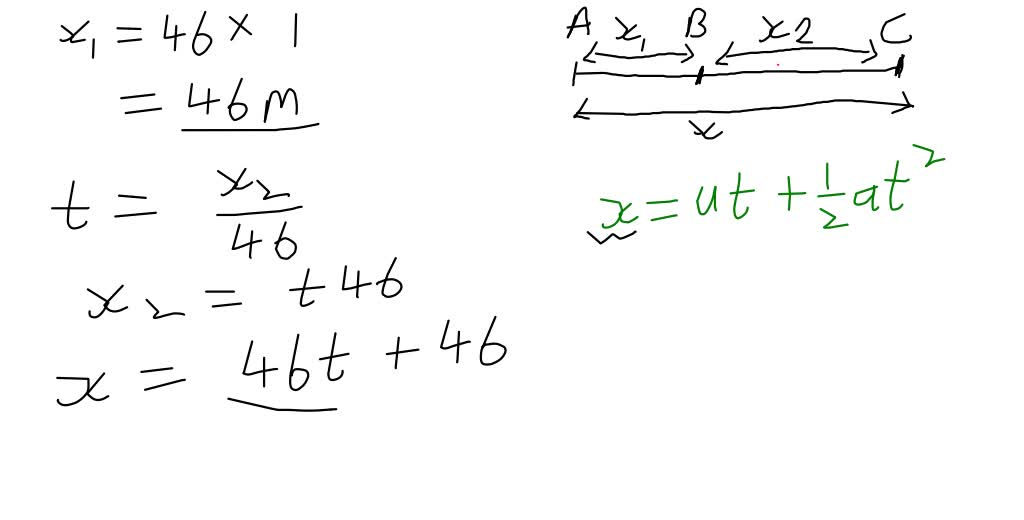 x₁ = 46 × 1
= 46m
t = x₂/46
x₂ = t46
x = 46t + 46
A x₁ B x2 C
x
x = ut + ½at²